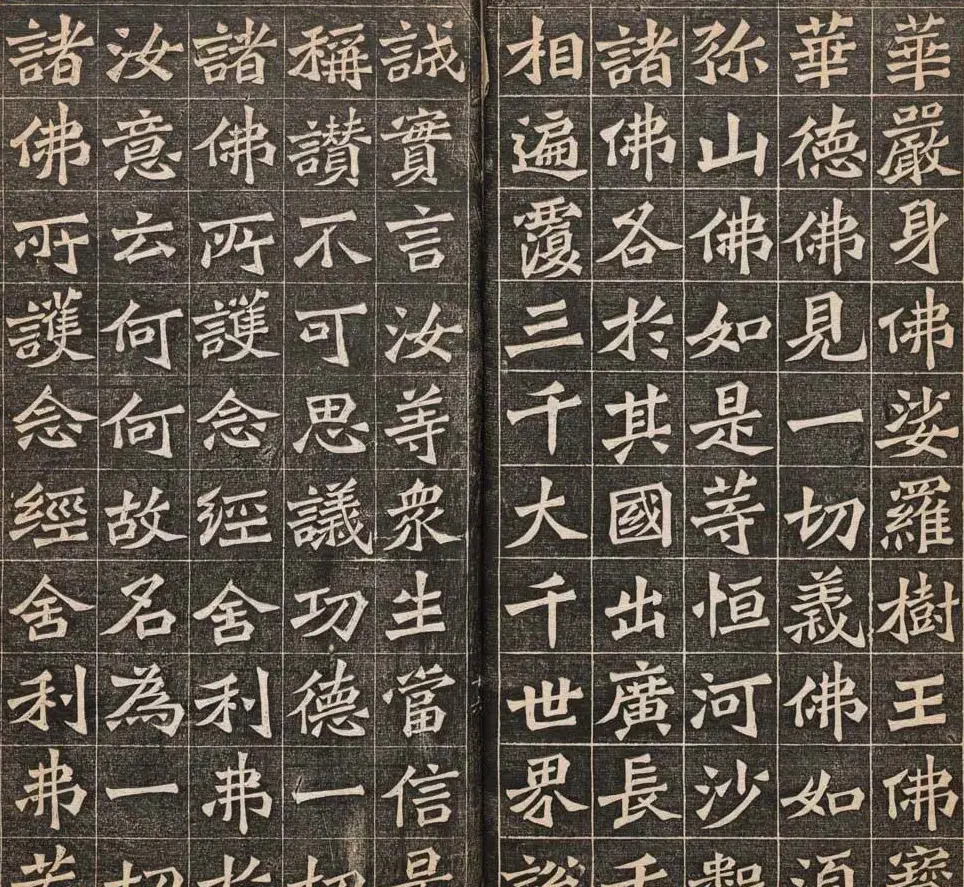 華嚴身佛娑羅樹王佛寶
華徳佛見一切義佛如須
弥山佛如是等恒河沙數
諸佛各於其國出廣長舌
相遍覆三千大千世界說
誠實言汝等衆生當信是
稱讃不可思議功德一切
諸佛所護念經舍利弗於
汝意云何何故名為一切
諸佛所護念經舍利弗若